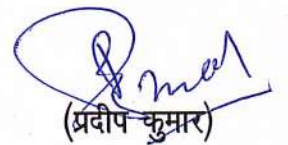 (प्रदीप कुमार)